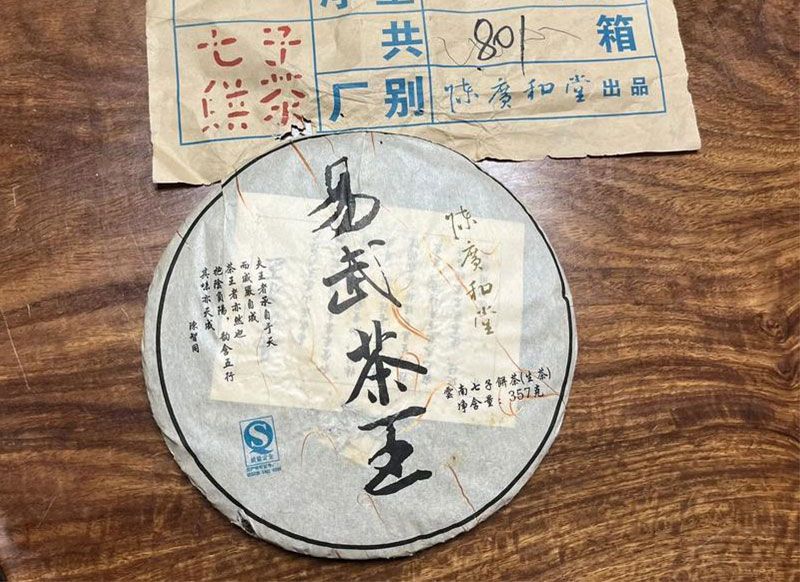 七子
餅茶
共 801 箱
厂别 陳廣和堂 出品
易武茶王
陳廣和堂
夫王者承自于天
而威嚴自成
茶王者亦然也
抱陰負陽，韵含五行
其味亦天成
陳智同
雲南七子餅茶(生茶)
净含量：357克
质量安全